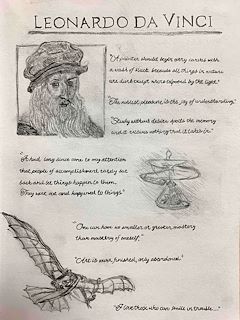 LEONARDO DA VINCI
"A painter should begin every canvas with
a wash of black because all things in nature
are dark except where exposed by the light."
"The noblest pleasure is the joy of understanding."
"Study without desire spoils the memory
and it retains nothing that it takes in."
"It had long since come to my attention
that people of accomplishment rarely sat
back and let things happen to them.
They went out and happened to things."
"One can have no smaller or greater mastery
than mastery of oneself."
"Art is never finished, only abandoned."
"I love those who can smile in trouble..."